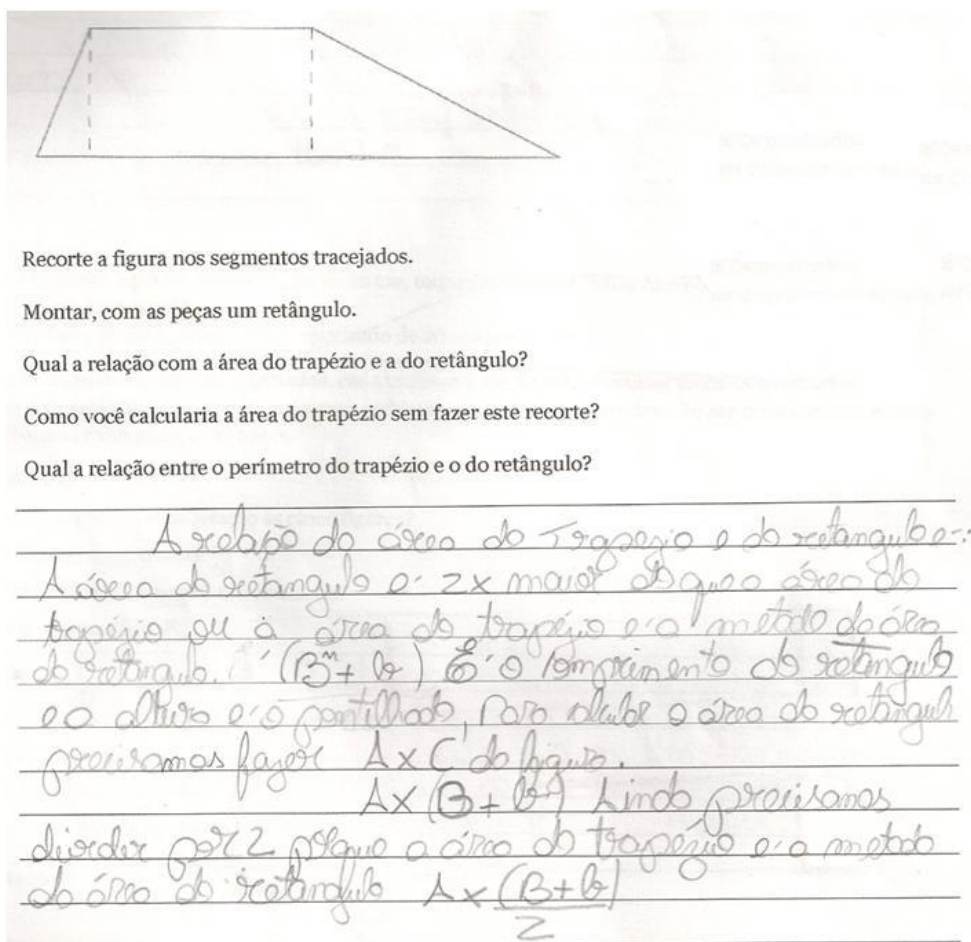 Recorte a figura nos segmentos tracejados.
Montar, com as peças um retângulo.
Qual a relação com a área do trapézio e a do retângulo?
Como você calcularia a área do trapézio sem fazer este recorte?
Qual a relação entre o perímetro do trapézio e o do retângulo?
A do área do Trapezio e do retangulo e:
A área do retangulo e 2x maior do que a área do
trapézio ou a área do trapézio e a metade da área
do retangulo. (B + b) É o comprimento do retângulo
e a altura e o pontilhado, Para calcular a área do retangulo
precisamos fazer A x C da figura.
A x (B + b) Ainda precisamos
dividir por 2 porque a área do trapézio e a metade
da área do retangulo A x (B+b)
2